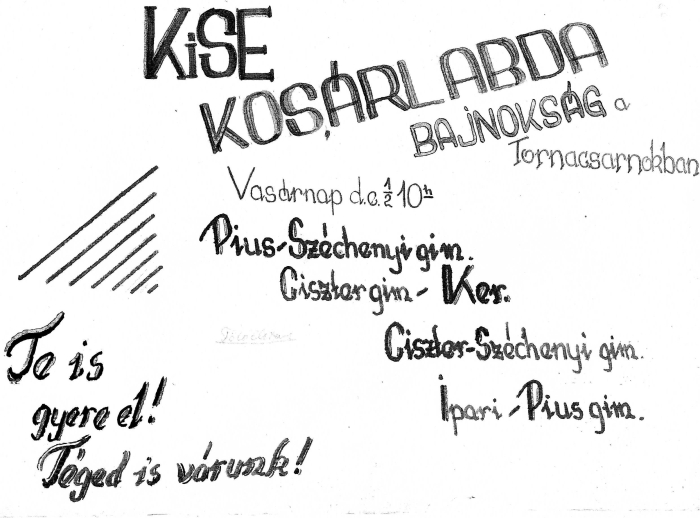 KiSE
KOSÁRLABDA
BAJNOKSÁG a
Tornacsarnokban
Vasárnap d.e. ½ 10h
Pius-Széchenyi gim.
Ciszter gim - Ker.
Ciszter-Széchenyi gim.
Ipari - Pius gim.
Te is
gyere el!
Téged is várunk!